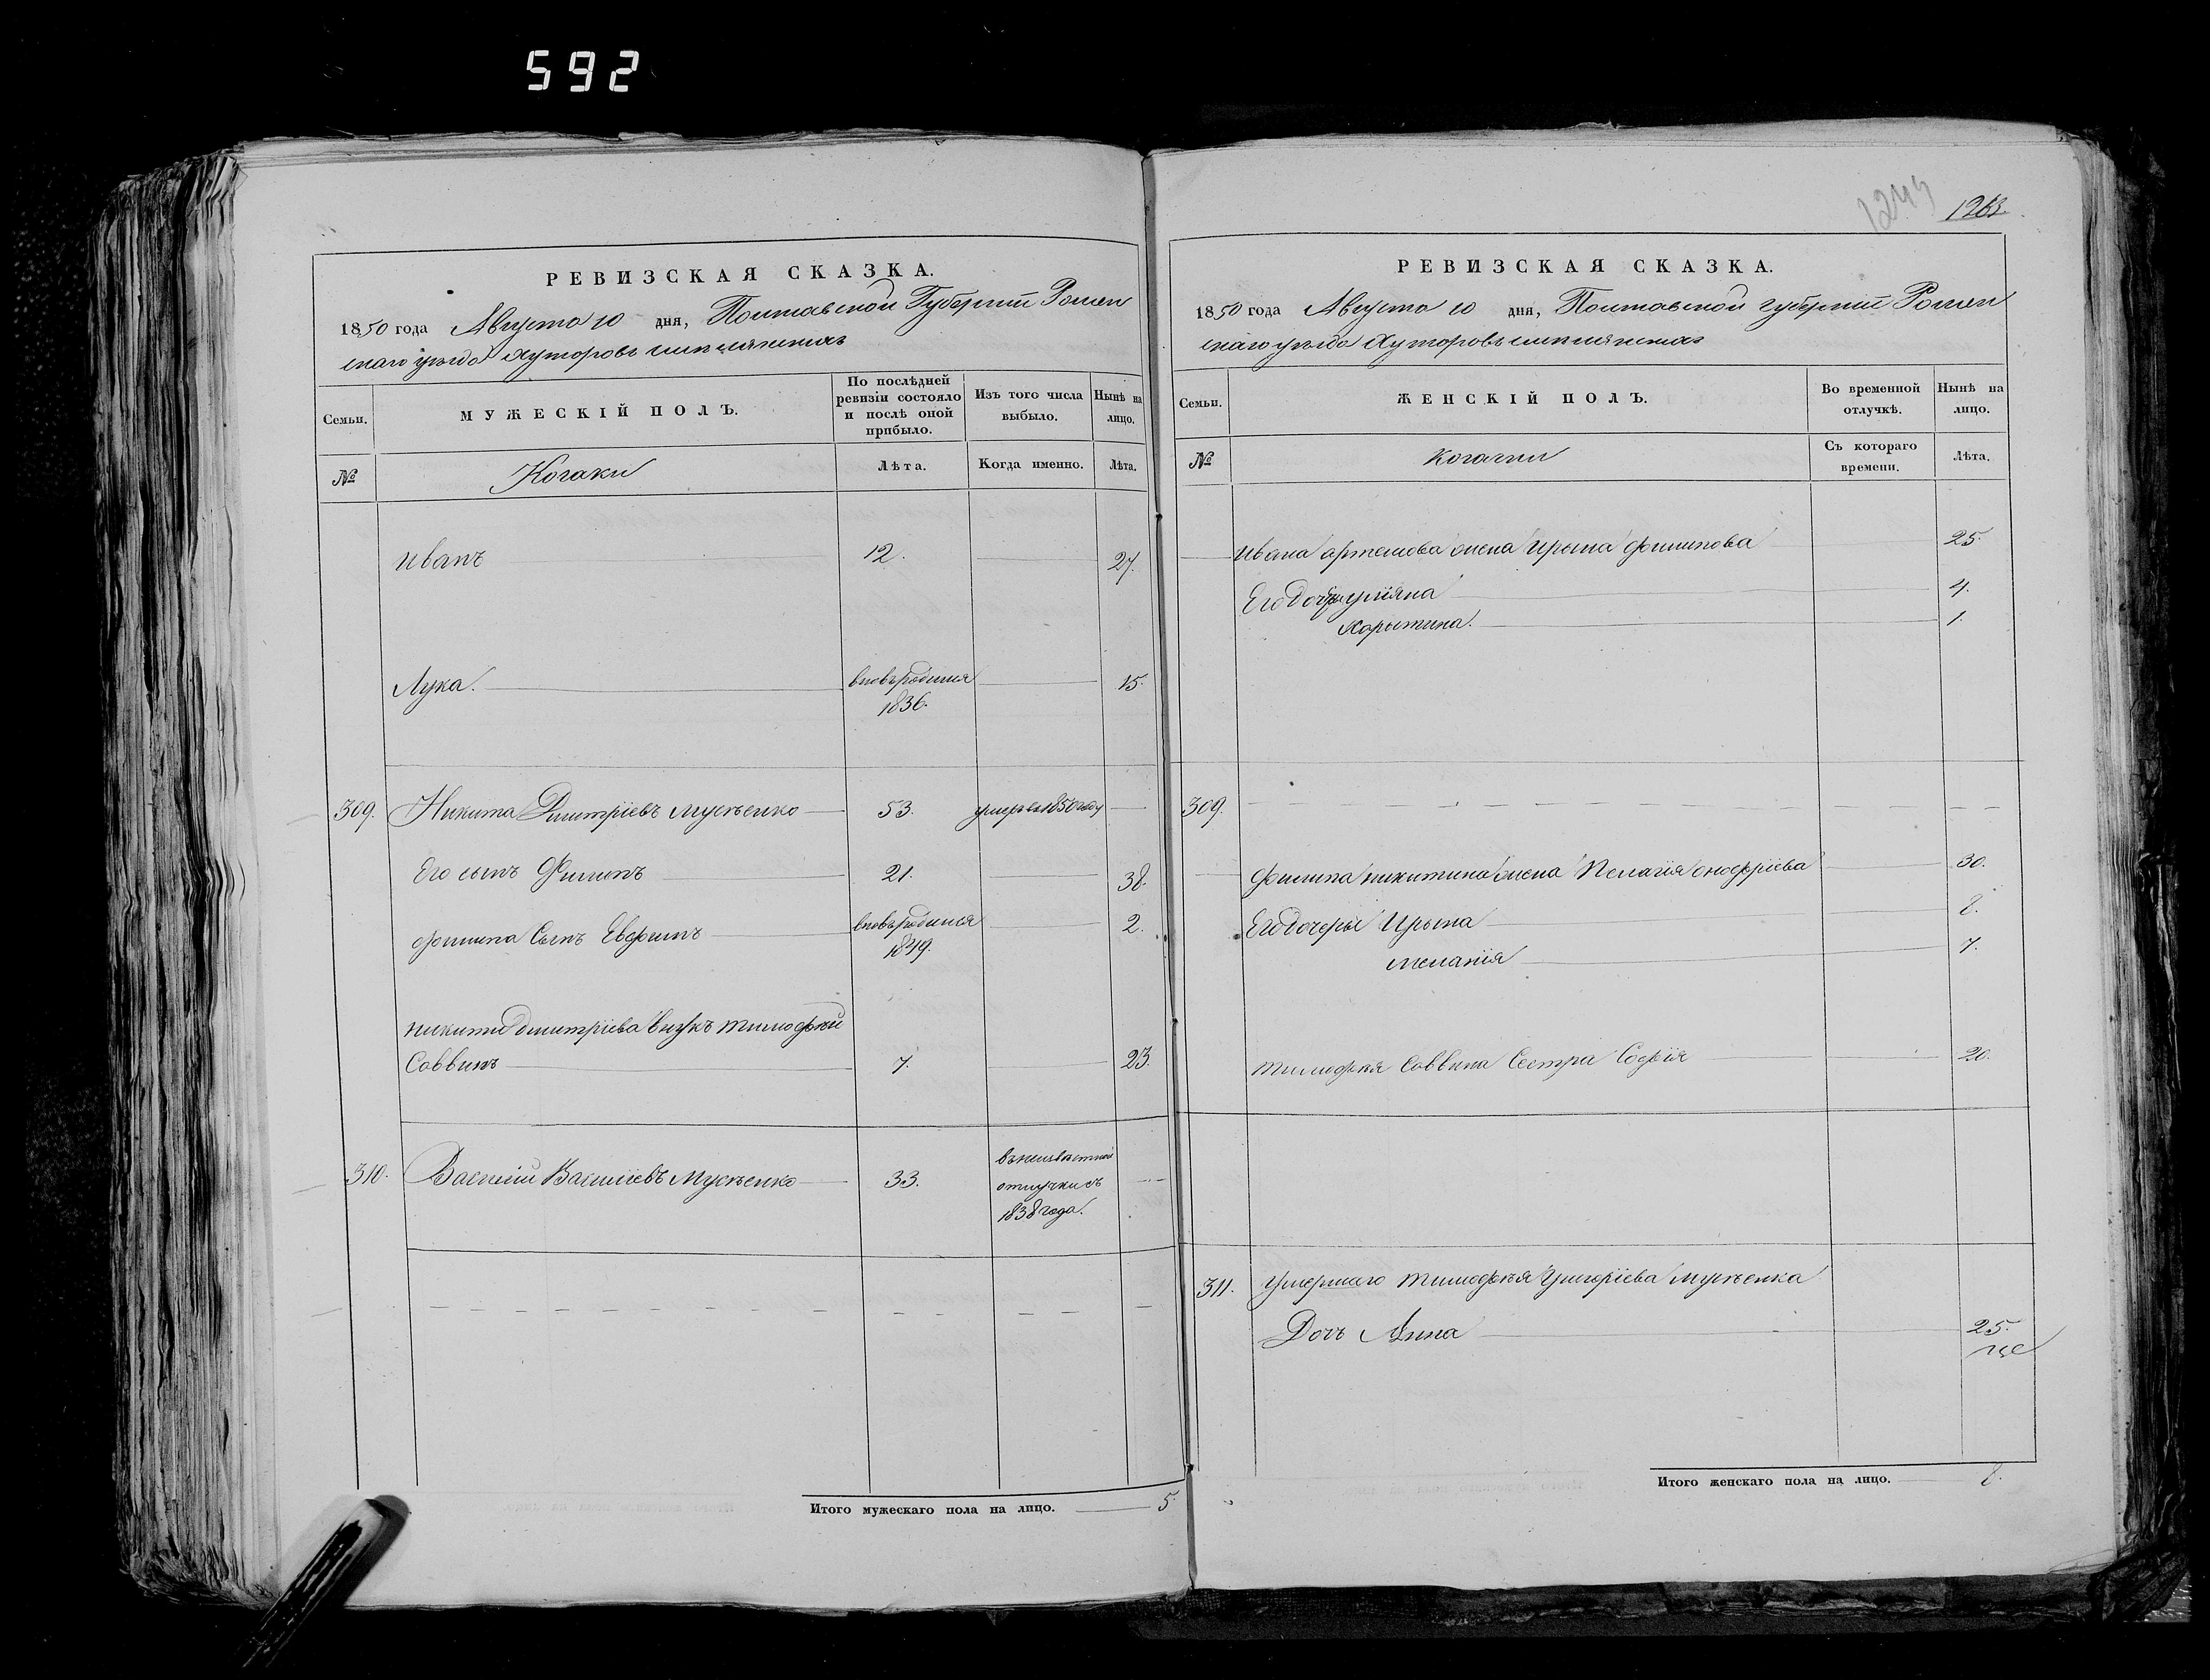 592
1244
1263.
РЕВИЗСКАЯ СКАЗКА.
1850 года Августа 10 дня, Полтавской Губернiи Ромен
скаго уезда Хуторовъ
Семьи.
МУЖЕСКІЙ ПОЛЪ.
По послѣдней ревизіи состояло и послѣ оной прибыло.
Изъ того числа выбыло.
Нынѣ на лицо.
№
Козаки
Лѣта.
Когда именно.
Лѣта.
Иванъ 12. 27.
Лука. вновьродился 15.
1836.
309. Никита Дмитріевъ Мусѣенко 53. умеръ въ 1850 году
Его сынъ Филипъ 21. 38.
Филипа Сынъ Евфимъ вновьродился 2.
1849.
Никиты Дмитріева внукъ Тимофѣй
Саввинъ 7. 23.
310. Василій Васильевъ Мусѣенко 33. въ неизвѣстной
отлучки съ
1838 года.
Итого мужескаго пола на лицо. 5.
РЕВИЗСКАЯ СКАЗКА.
1850 года Августа 10 дня, Полтавской губернiи Ромен
скаго уезда Хуторовъ
Семьи.
ЖЕНСКІЙ ПОЛЪ.
Во временной отлучкѣ.
Нынѣ на лицо.
№
Козачки
Съ котораго времени.
Лѣта.
Ивана Артемова жена Ирына Филипова 25.
Его дочери Уліяна 4.
Харытина. 1.
309.
Филипа Никитина жена Пелагія Онофріева 30.
Его дочеры Ирына 8.
Меланія 7.
Тимофѣя Саввина Сестра Софія 20.
311. Умершаго Тимофѣя Григоріева Мусѣенка
Дочь Анна 25.
Итого женскаго пола на лицо. 8.